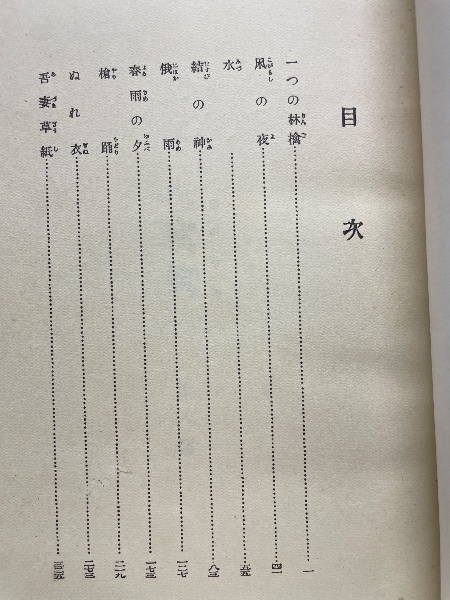 目次
一つの林檎 一
凩の夜 四一
水 五五
結の神 八三
俄雨 一二七
春雨の夕 一七三
槍踊 二一九
ぬれ衣 二七三
吾妻草紙 三三五